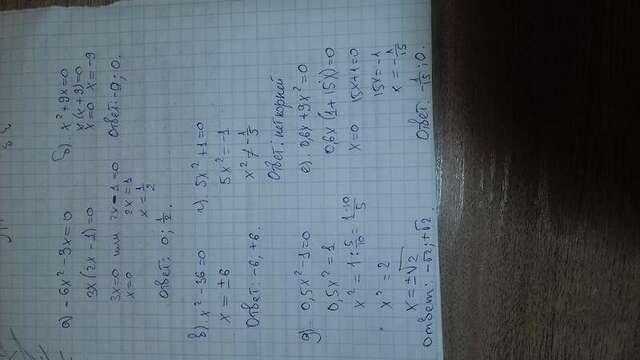 а) -6x² - 3x = 0
3x(2x - 1) = 0
3x = 0 или 2x - 1 = 0
x = 0 2x = 1
x = 1/2
Ответ: 0; 1/2.
б) x² + 9x = 0
x(x + 9) = 0
x = 0 x = -9
Ответ: -9; 0.
в) x² - 36 = 0
x = ±6
Ответ: -6; +6.
г) 5x² + 1 = 0
5x² = -1
x² ≠ -1/5
Ответ: нет корней
д) 0,5x² - 1 = 0
0,5x² = 1
x² = 1 : 5/10 = 1·10/5
x² = 2
x = ±√2
Ответ: -√2; +√2.
е) 0,6x + 9x² = 0
0,6x (1 + 15x) = 0
x = 0 15x + 1 = 0
15x = -1
x = -1/15
Ответ: -1/15; 0.